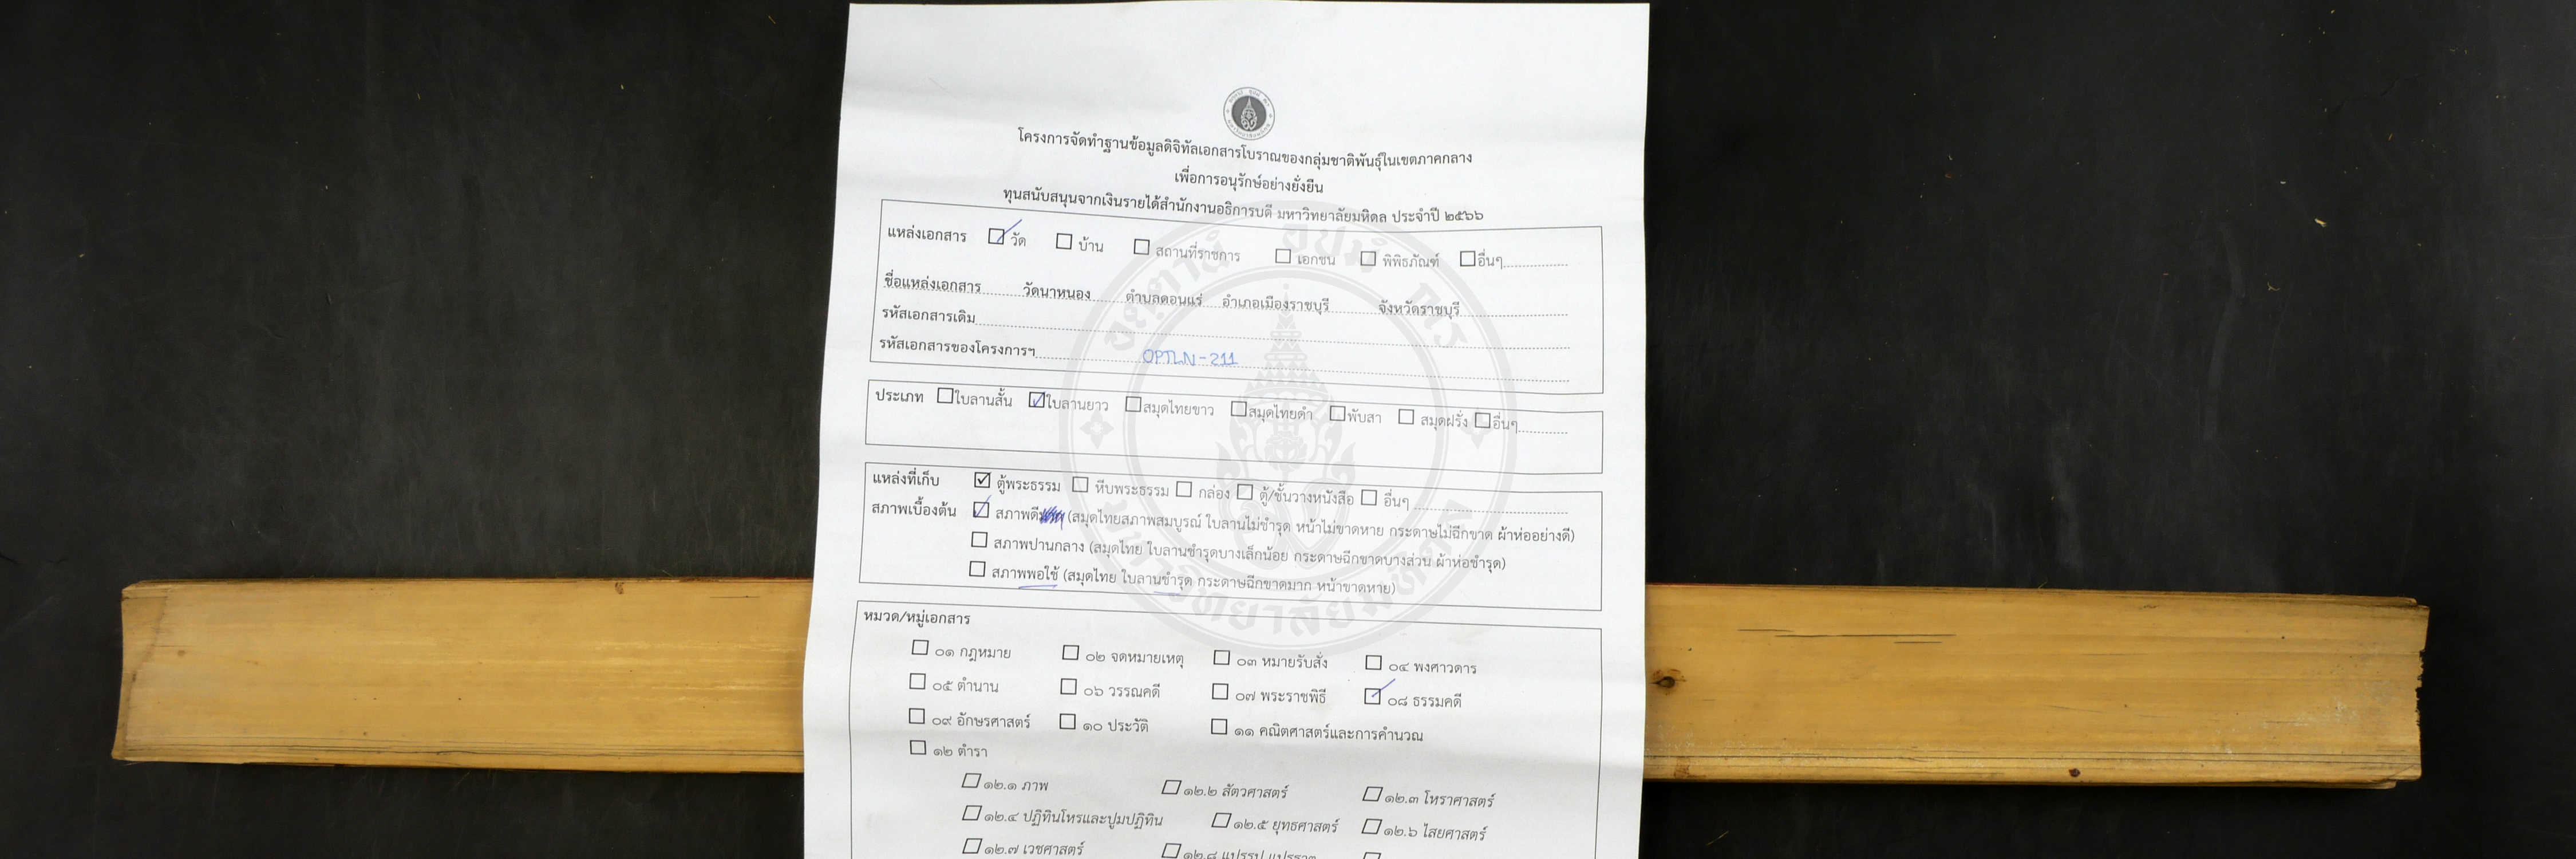 โครงการจัดทำฐานข้อมูลดิจิทัลเอกสารโบราณของกลุ่มชาติพันธุ์ในเขตภาคกลาง
เพื่อการอนุรักษ์อย่างยั่งยืน
ทุนสนับสนุนจากเงินรายได้สำนักงานอธิการบดี มหาวิทยาลัยมหิดล ประจำปี ๒๕๖๖
แหล่งเอกสาร วัด บ้าน สถานที่ราชการ เอกชน พิพิธภัณฑ์ อื่นๆ
ชื่อแหล่งเอกสาร วัดนาหนอง ตำบลดอนแร่ อำเภอเมืองราชบุรี จังหวัดราชบุรี
รหัสเอกสารเดิม
รหัสเอกสารของโครงการฯ OPTLN-211
ประเภท ใบลานสั้น ใบลานยาว สมุดไทยขาว สมุดไทยดำ พับสา สมุดฝรั่ง อื่นๆ
แหล่งที่เก็บ ตู้พระธรรม หีบพระธรรม กล่อง ตู้/ชั้นวางหนังสือ อื่นๆ
สภาพเบื้องต้น สภาพดี (สมุดไทยสภาพสมบูรณ์ ใบลานไม่ชำรุด หน้าไม่ขาดหาย กระดาษไม่ฉีกขาด ผ้าห่ออย่างดี)
สภาพปานกลาง (สมุดไทย ใบลานชำรุดบางเล็กน้อย กระดาษฉีกขาดบางส่วน ผ้าห่อชำรุด)
สภาพพอใช้ (สมุดไทย ใบลานชำรุด กระดาษฉีกขาดมาก หน้าขาดหาย)
หมวด/หมู่เอกสาร
๐๑ กฎหมาย ๐๒ จดหมายเหตุ ๐๓ หมายรับสั่ง ๐๔ พงศาวดาร
๐๕ ตำนาน ๐๖ วรรณคดี ๐๗ พระราชพิธี ๐๘ ธรรมคดี
๐๙ อักษรศาสตร์ ๑๐ ประวัติ ๑๑ คณิตศาสตร์และการคำนวณ
๑๒ ตำรา
๑๒.๑ ภาพ ๑๒.๒ สัตวศาสตร์ ๑๒.๓ โหราศาสตร์
๑๒.๔ ปฏิทินโหรและปูมปฏิทิน ๑๒.๕ ยุทธศาสตร์ ๑๒.๖ ไสยศาสตร์
๑๒.๗ เวชศาสตร์ ๑๒.๘ แปรรูป แปรธาตุ